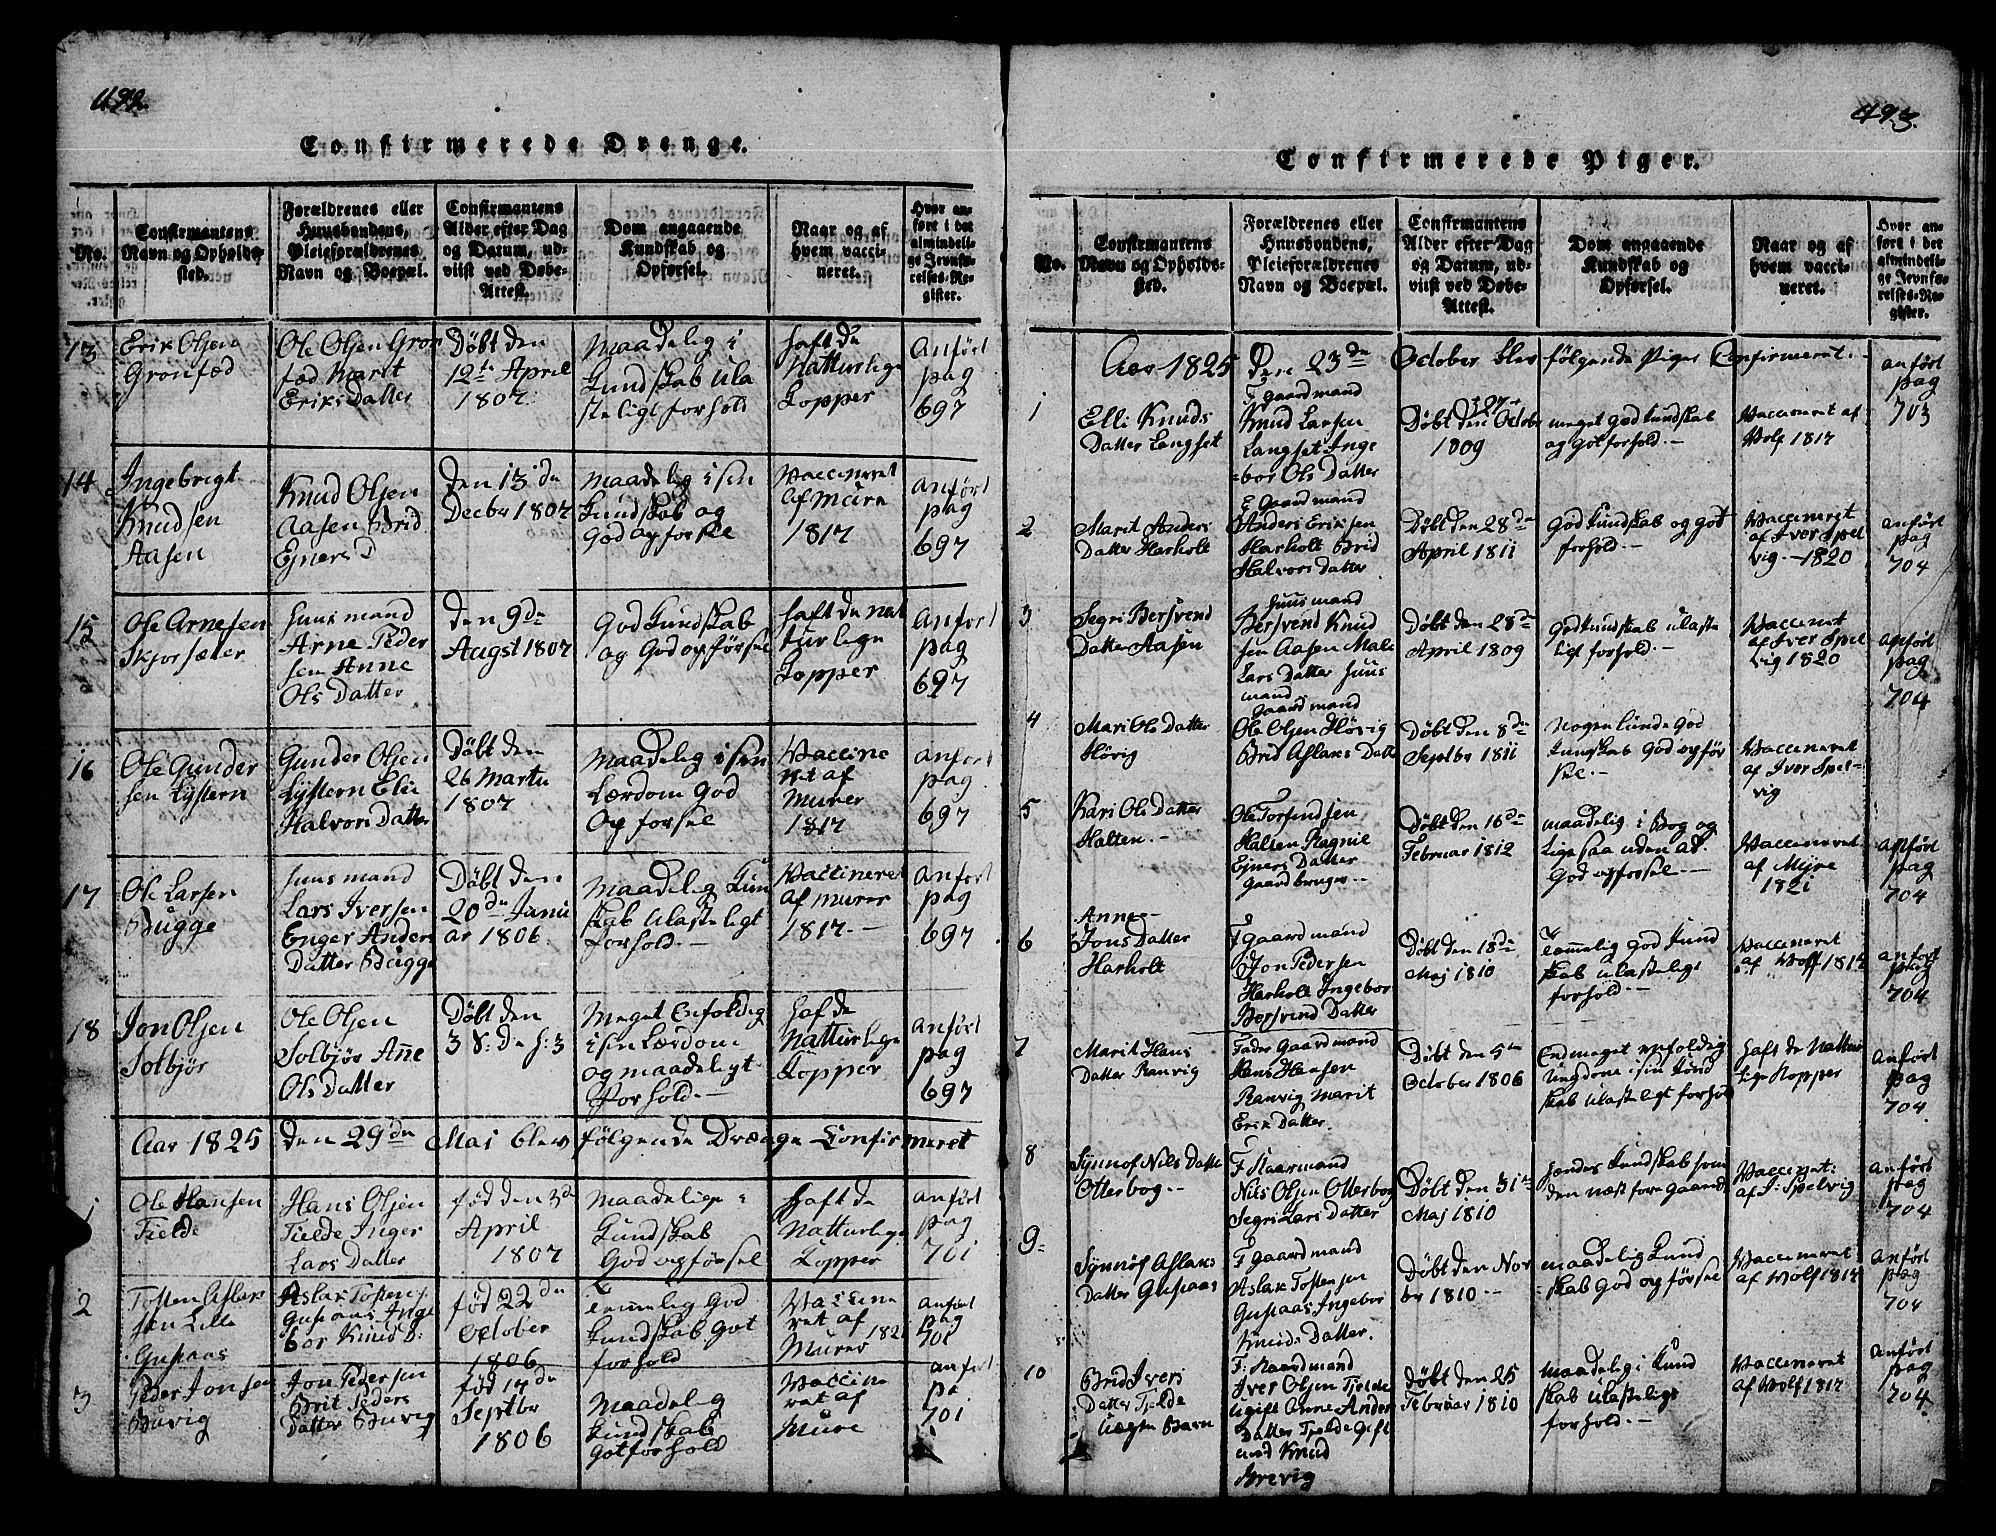 493.
Confirmerede Drenge.
No.
Confirmantens
Navn og Opholds-
sted.
Forældrenes eller
Huusbondens,
Pleieforældrenes
Navn og Boepæl.
Confirmantens
Alder efter Dag
og Datum, ud-
viist ved Døbe-
Attest.
Dom angaaende
Kundskab og
Opførsel.
Naar og af
hvem vacci-
neret.
Hvor an-
ført i det
almindeli-
ge Jevnfø-
relses-Re-
gister.
13
Erik Olsen
Gronfæd
Ole Olsen Gron
fæd Marit
Eriks Datter
Døbt den
12te April
1807
Maadelig i
Kundskab Ula
steligt forhold
haft de
Natturlige
Kopper
Anført
pag
697
14
Ingebrigt
Knudsen
Aasen
Knud Olsen
Aasen Brid
Ejners D
den 13de
Decbr 1807
maadelig i sin
Kundskab og
God opforsel
Vaccineret
af Mura
1817
Anført
pag
697
15
Ole Arnesen
Skjorsæter
Huus mand
Arne Peder
sen Anne
Ols Datter
den 9de
Augst 1807
God Kundskab
og God opførsel
haft de nat
turlige
Kopper
Anført
pag
697
16
Ole Gunder
sen Lystern
Gunder Olsen
Lystern Eli
Halvors Datter
Døbt den
26 Martii
1807
Maadelig i sin
Lærdom God
Opforsel
Vaccine
ret af
Murer
1817
Anført
pag
697
17
Ole Larsen
Bugge
Huus mand
Lars Iversen
Enger Anders
Datter Bugge
Døbt den
20de Janu
ar 1806
Maadelig Kun
skab Ulasteligt
forhold.-
Vaccineret
af murer
1817.-
Anført
pag
697
18
Jon Olsen
Solbjør
Ole Olsen
Solbjør Anne
Ols Datter
Døbt den
3 S: de h: 3
Meget Enfoldig
i sin Lærdom
og maadeligt
Forhold.-
Haf de
Natturlige
Kopper
Anført
pag
697
Aar 1825 den 29de Mai blev følgende Drænge Confirmeret
1
Ole Hansen
Fielde
Hans Olsen
Fielde Inger
Lars Datter
fød den 3de
April
1807
Maadelige i
Kundskab
God opførsel
Haft de
Natturlige
Kopper
Anført
pag
701
2
Tosten Aslak
sen Lille
Gusaas
Aslak Tosten
Gusaas Inge
bor Knuds D:
fød 22de
October
1806
temmelig God
Kundskab Got
forhold
Vassine
ret af
Murer 182
Anført
pag
701
3
Peder Jonsen
Buvig
Jon Pedersen
Brit Peders
Datter Buvig
fød 14de
Septbr
1806
Maadelig
Kundskab
Got forhold
Vaccine
ret af
Mure
Anført
pa
701
Confirmerede Piger.
No.
Confirmantens
Navn og Opholds-
sted.
Forældrenes eller
Huusbondens,
Pleieforældrenes
Navn og Boepæl.
Confirmantens
Alder efter Dag
og Datum, ud-
viist ved Døbe-
Attest.
Dom angaaende
Kundskab og
Opførsel.
Naar og af
hvem vacci-
neret.
Hvor an-
ført i det
almindeli-
ge Jevnfø-
relses-Re-
gister.
Aar 1825 Den 23de October blev følgende Piger Confirmeret.
1
Elli Knuds
Datter Langset
F gaardmand
Knud Larsen
Langset Inge
bor Ols Datter
27
Døbt den Octobr
1809
meget God Kundskab
og Got forhold.-
Vaccineret af
Wolf 1817
anført
pag
703
2
Marit Anders
Datter Harholt
F gaard mand
Anders Eriksen
Harholt Brid
Halvors Datter
Døbt den 28de
April 1811
God Kundskab og got
forhold.-
Vaccineret
af Iver Spel
vig.-1820
anført
pag
704
3
Segri Bersvend
Datter Aasen
Huus mand
Bersvend Knud
sen Aasen Mali
Lars Datter Huus
mand
Døbt den 28de
April 1809
God Kundskab ulaste
ligt forhold.-
Vaccineret
af Iver Spel
vig 1820
anført
pag
704
4
Mari Ols Datter
Hövig
Gaard mand
Ole Olsen Hövig
Brid Aslaks Datte
Døbt den 8de
Septbr 1811
Nogenlunde God
Kunskab God opfør
sel.-
Vaccineret
af Iver Spel-
vig
5
Kari Ols Datter
Halten.-
Ole Torfindsen
Halten Ragnil
Ejners Datter
Gaardbruger
Døbt den 16de
Februar 1812
maadelig i Bog og
Ligesaa uden at.
God opførsel.-
Vaccineret
af Mijre
1821
anført
pag
704
6
Anne
Jons Datter
Harholt
F gaard mand
Jon Pedersen
Harholt Ingebor
Bersvend Datter
Døbt den 18de
Maj 1810
Temmelig God Kund
skab Ulasteligt
forhold.-
Vaccineret
af Wolf 1817
anført
pag
704
7
Marit Hans
Datter Ranvig
Fader Gaardmand
Hans Hansen
Ranvig Marit
Erik Datter.
Døbt den 5te
October 1806
End meget enfoldig
Ungdom i sin Kund
skab Ulasteligt forhold
haft de Nattur
lige Kopper
anført
pag
704
8
Synnof Nils Datte
Otterbog.-
F Kaarmand
Nils Olsen Otterbog
Segri Lars Datter
Døbt den 31te
Maj 1810
hendes Kundskab som
den næst foregaaend
Vaccineret:
af I: Spelvig
anført
pag
704
9
Synnøf Aslaks
Datter Gusaas
F gaard mand
Aslak Tostensen
Gusaas Ingebor
Knuds Datter.
Døbt den Nov
br 1810.-
maadelig Kund
skab God opførsel
Vaccineret
af Wolf 1817
anført
pag
704
10
Brid Ivers
Datter Fjelde
Uægte Barn
F: Kaardmand
Iver Olsen Fjelde
Ugift Anne Anders
Datter Fjelde Gift
med Knud
Brevig
Døbt den 25
Februar 1810
maadelig i Kund
skab Ulasteligt
forhold.-
Vaccineret
af Wolf 1817
anført
pag
704.